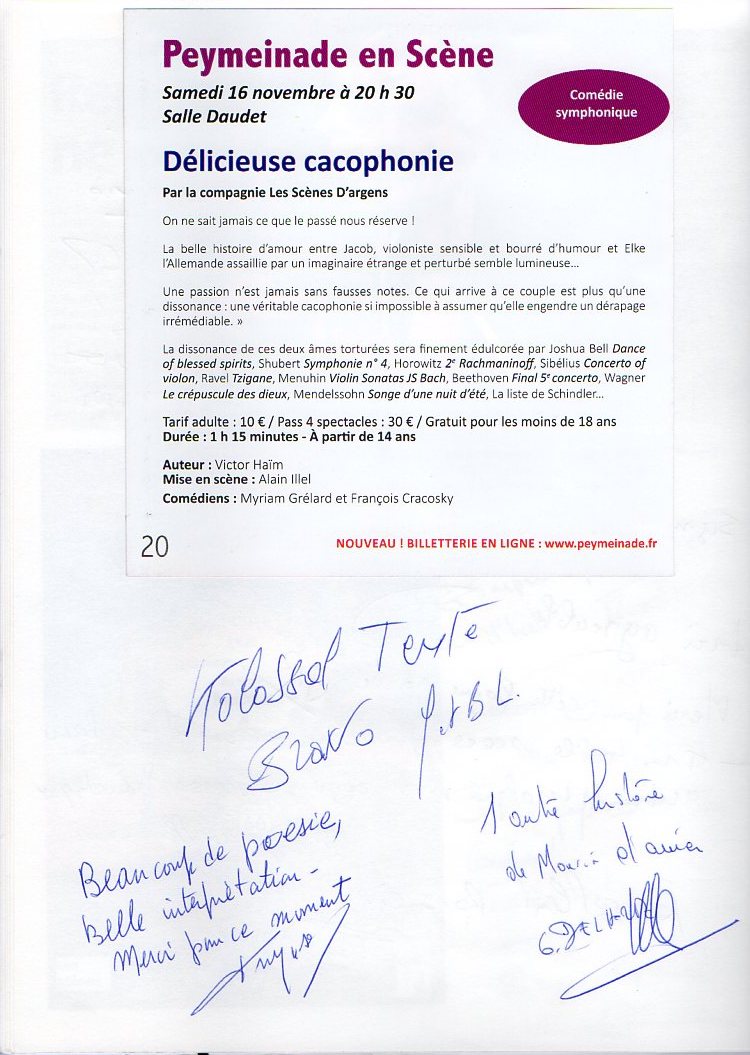 Peymeinade en Scène
Samedi 16 novembre à 20 h 30
Salle Daudet
Comédie
symphonique
Délicieuse cacophonie
Par la compagnie Les Scènes D'argens
On ne sait jamais ce que le passé nous réserve !
La belle histoire d'amour entre Jacob, violoniste sensible et bourré d'humour et Elke
l'Allemande assaillie par un imaginaire étrange et perturbé semble lumineuse...
Une passion n'est jamais sans fausses notes. Ce qui arrive à ce couple est plus qu'une
dissonance : une véritable cacophonie si impossible à assumer qu'elle engendre un dérapage
irrémédiable. »
La dissonance de ces deux âmes torturées sera finement édulcorée par Joshua Bell Dance
of blessed spirits, Shubert Symphonie n° 4, Horowitz 2e Rachmaninoff, Sibélius Concerto of
violon, Ravel Tzigane, Menuhin Violin Sonatas JS Bach, Beethoven Final 5e concerto, Wagner
Le crépuscule des dieux, Mendelssohn Songe d'une nuit d'été, La liste de Schindler...
Tarif adulte : 10 € / Pass 4 spectacles : 30 € / Gratuit pour les moins de 18 ans
Durée : 1 h 15 minutes - À partir de 14 ans
Auteur : Victor Haïm
Mise en scène : Alain Illel
Comédiens : Myriam Grélard et François Cracosky
20
NOUVEAU ! BILLETTERIE EN LIGNE : www.peymeinade.fr
Kolossal Texte
Bravo
1 autre histoire
de Mourir d'aimer
Beaucoup de poesie,
Belle interprètation -
Merci pour ce moment